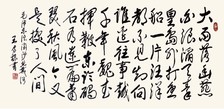 大雨落幽燕
白浪滔天秦
皇岛外打鱼
船一片汪洋
都不见知向
谁边往事越
千年魏武
挥鞭东临碣
石有遗篇萧
瑟秋风今又
是换了人间